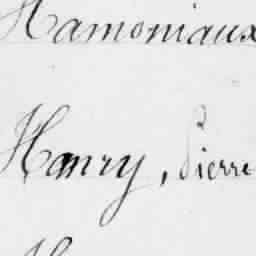 Hamoniaux
Hanry, Pierre